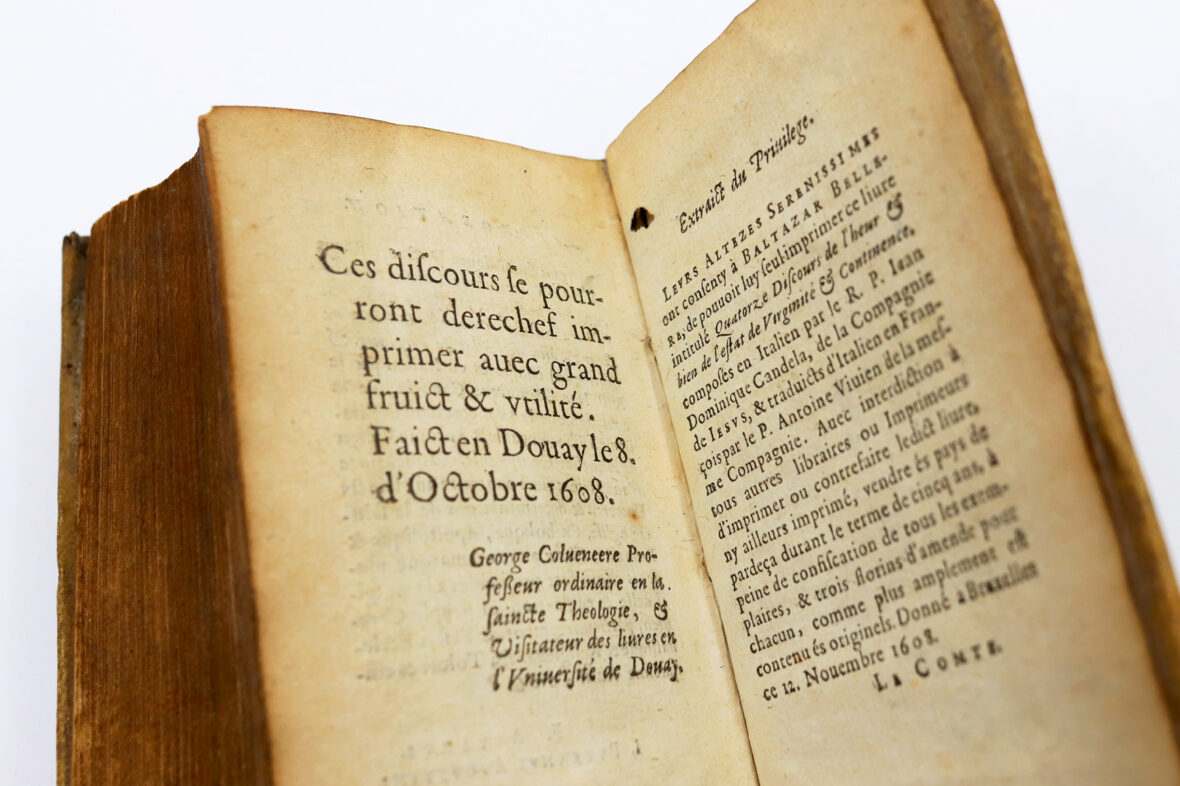 Ces diſcours ſe pour-
ront derechef im-
primer auec grand
fruict & vtilité.
Faict en Douay le 8.
d'Octobre 1608.
George Colueneere Pro-
feſſeur ordinaire en la
ſaincte Theologie, &
Viſitateur des liures en
l'Vniuerſité de Douay.
Extraict du Priuilege.
LEVRS ALTEZES SERENISSIMES
ont conſenty à BALTAZAR BELLE-
RE, de pouuoir luy ſeul imprimer ce liure
intitulé Quatorze Diſcours de l'heur &
bien de l'eſtat de Virginité & Continence,
compoſes en Italien par le R. P. Iean
Dominique Candela, de la Compagnie
de IESVS, & traduicts d'Italien en Fran-
çois par le P. Antoine Viuien de la meſ-
me Compagnie. Auec interdiction à
tous autres libraires ou Imprimeurs
d'imprimer ou contrefaire ledict liure,
ny ailleurs imprimé, vendre és pays de
pardeça durant le terme de cincq ans, à
peine de confiſcation de tous les exem-
plaires, & trois florins d'amende pour
chacun, comme plus amplement eſt
contenu és originels. Donné a Bruxelles
ce 12. Nouembre 1608.
LA COMTE.